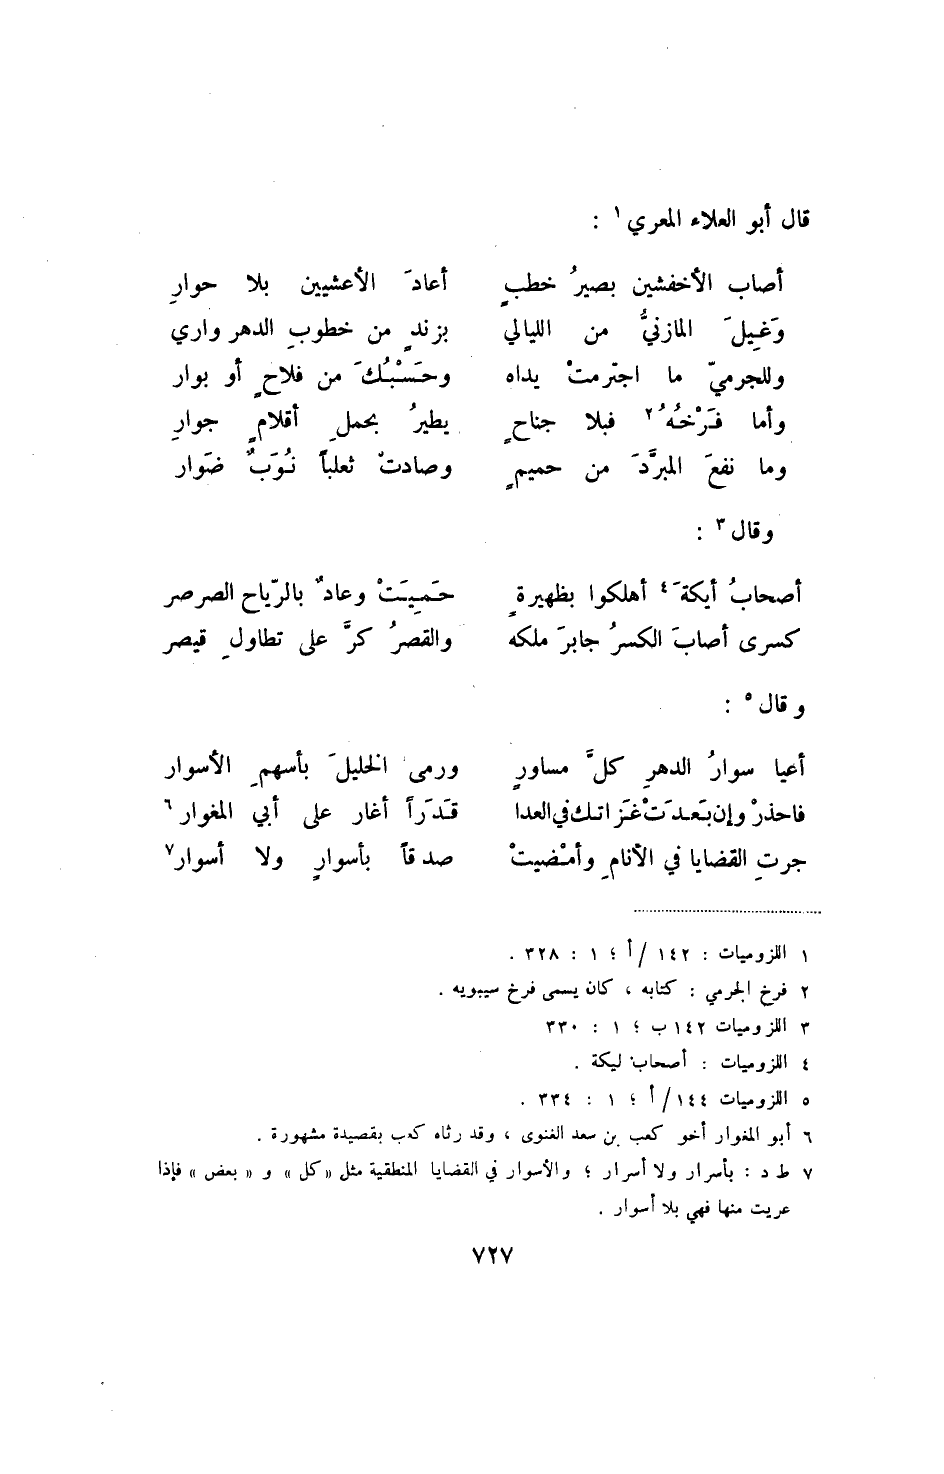 قال أبو العلاء المعري ١ :
أصاب الأخفشين بصيرُ خطبٍ أعادَ الأعشيين بلا حوارِ
وَغِيلَ المازنيُّ من الليالي بزندٍ من خطوبِ الدهر واري
وللجرميّ ما اجترمتْ يداه وحَسْبُكَ من فلاحٍ أو بوار
وأما فَرْخُهُ ٢ فبلا جناحٍ يطيرُ بحملِ أقلامٍ جوارِ
وما نفعَ المبرَّدَ من حميمٍ وصادتْ ثعلباً نُوَبٌ ضَوار
وقال ٣ :
أصحابُ أيكةَ ٤ أهلكوا بظهيرةٍ حَمِيَتْ وعادٌ بالرّياح الصرصر
كسرى أصابَ الكسرُ جابرَ ملكه والقصرُ كرَّ على تطاولِ قيصر
وقال ٥ :
أعيا سوارُ الدهرِ كلَّ مساورٍ ورمى الخليلَ بأسهمِ الأسوار
فاحذرْ وإن بَعدَتْ غَزاتك في العدا قَدَراً أغار على أبي المغوار ٦
جرتِ القضايا في الأنامِ وأمْضيتْ صدقاً بأسوارٍ ولا أسوار ٧
١ اللزوميات : ١٤٢ /أ ؛ ١ : ٣٢٨ .
٢ فرخ الجرمي : كتابه ، كان يسمى فرخ سيبويه .
٣ اللزوميات ١٤٢ ب ؛ ١ : ٣٣٠
٤ اللزوميات : أصحاب ليكة .
٥ اللزوميات ١٤٤ /أ ؛ ١ : ٣٣٤ .
٦ أبو المغوار أخو كعب بن سعد الغنوى ، وقد رثاه كعب بقصيدة مشهورة .
٧ ط د : بأسرار ولا أسرار ؛ والأسوار في القضايا المنطقية مثل « كل » و « بعض » فإذا
عريت منها فهي بلا أسوار .
٧٢٧